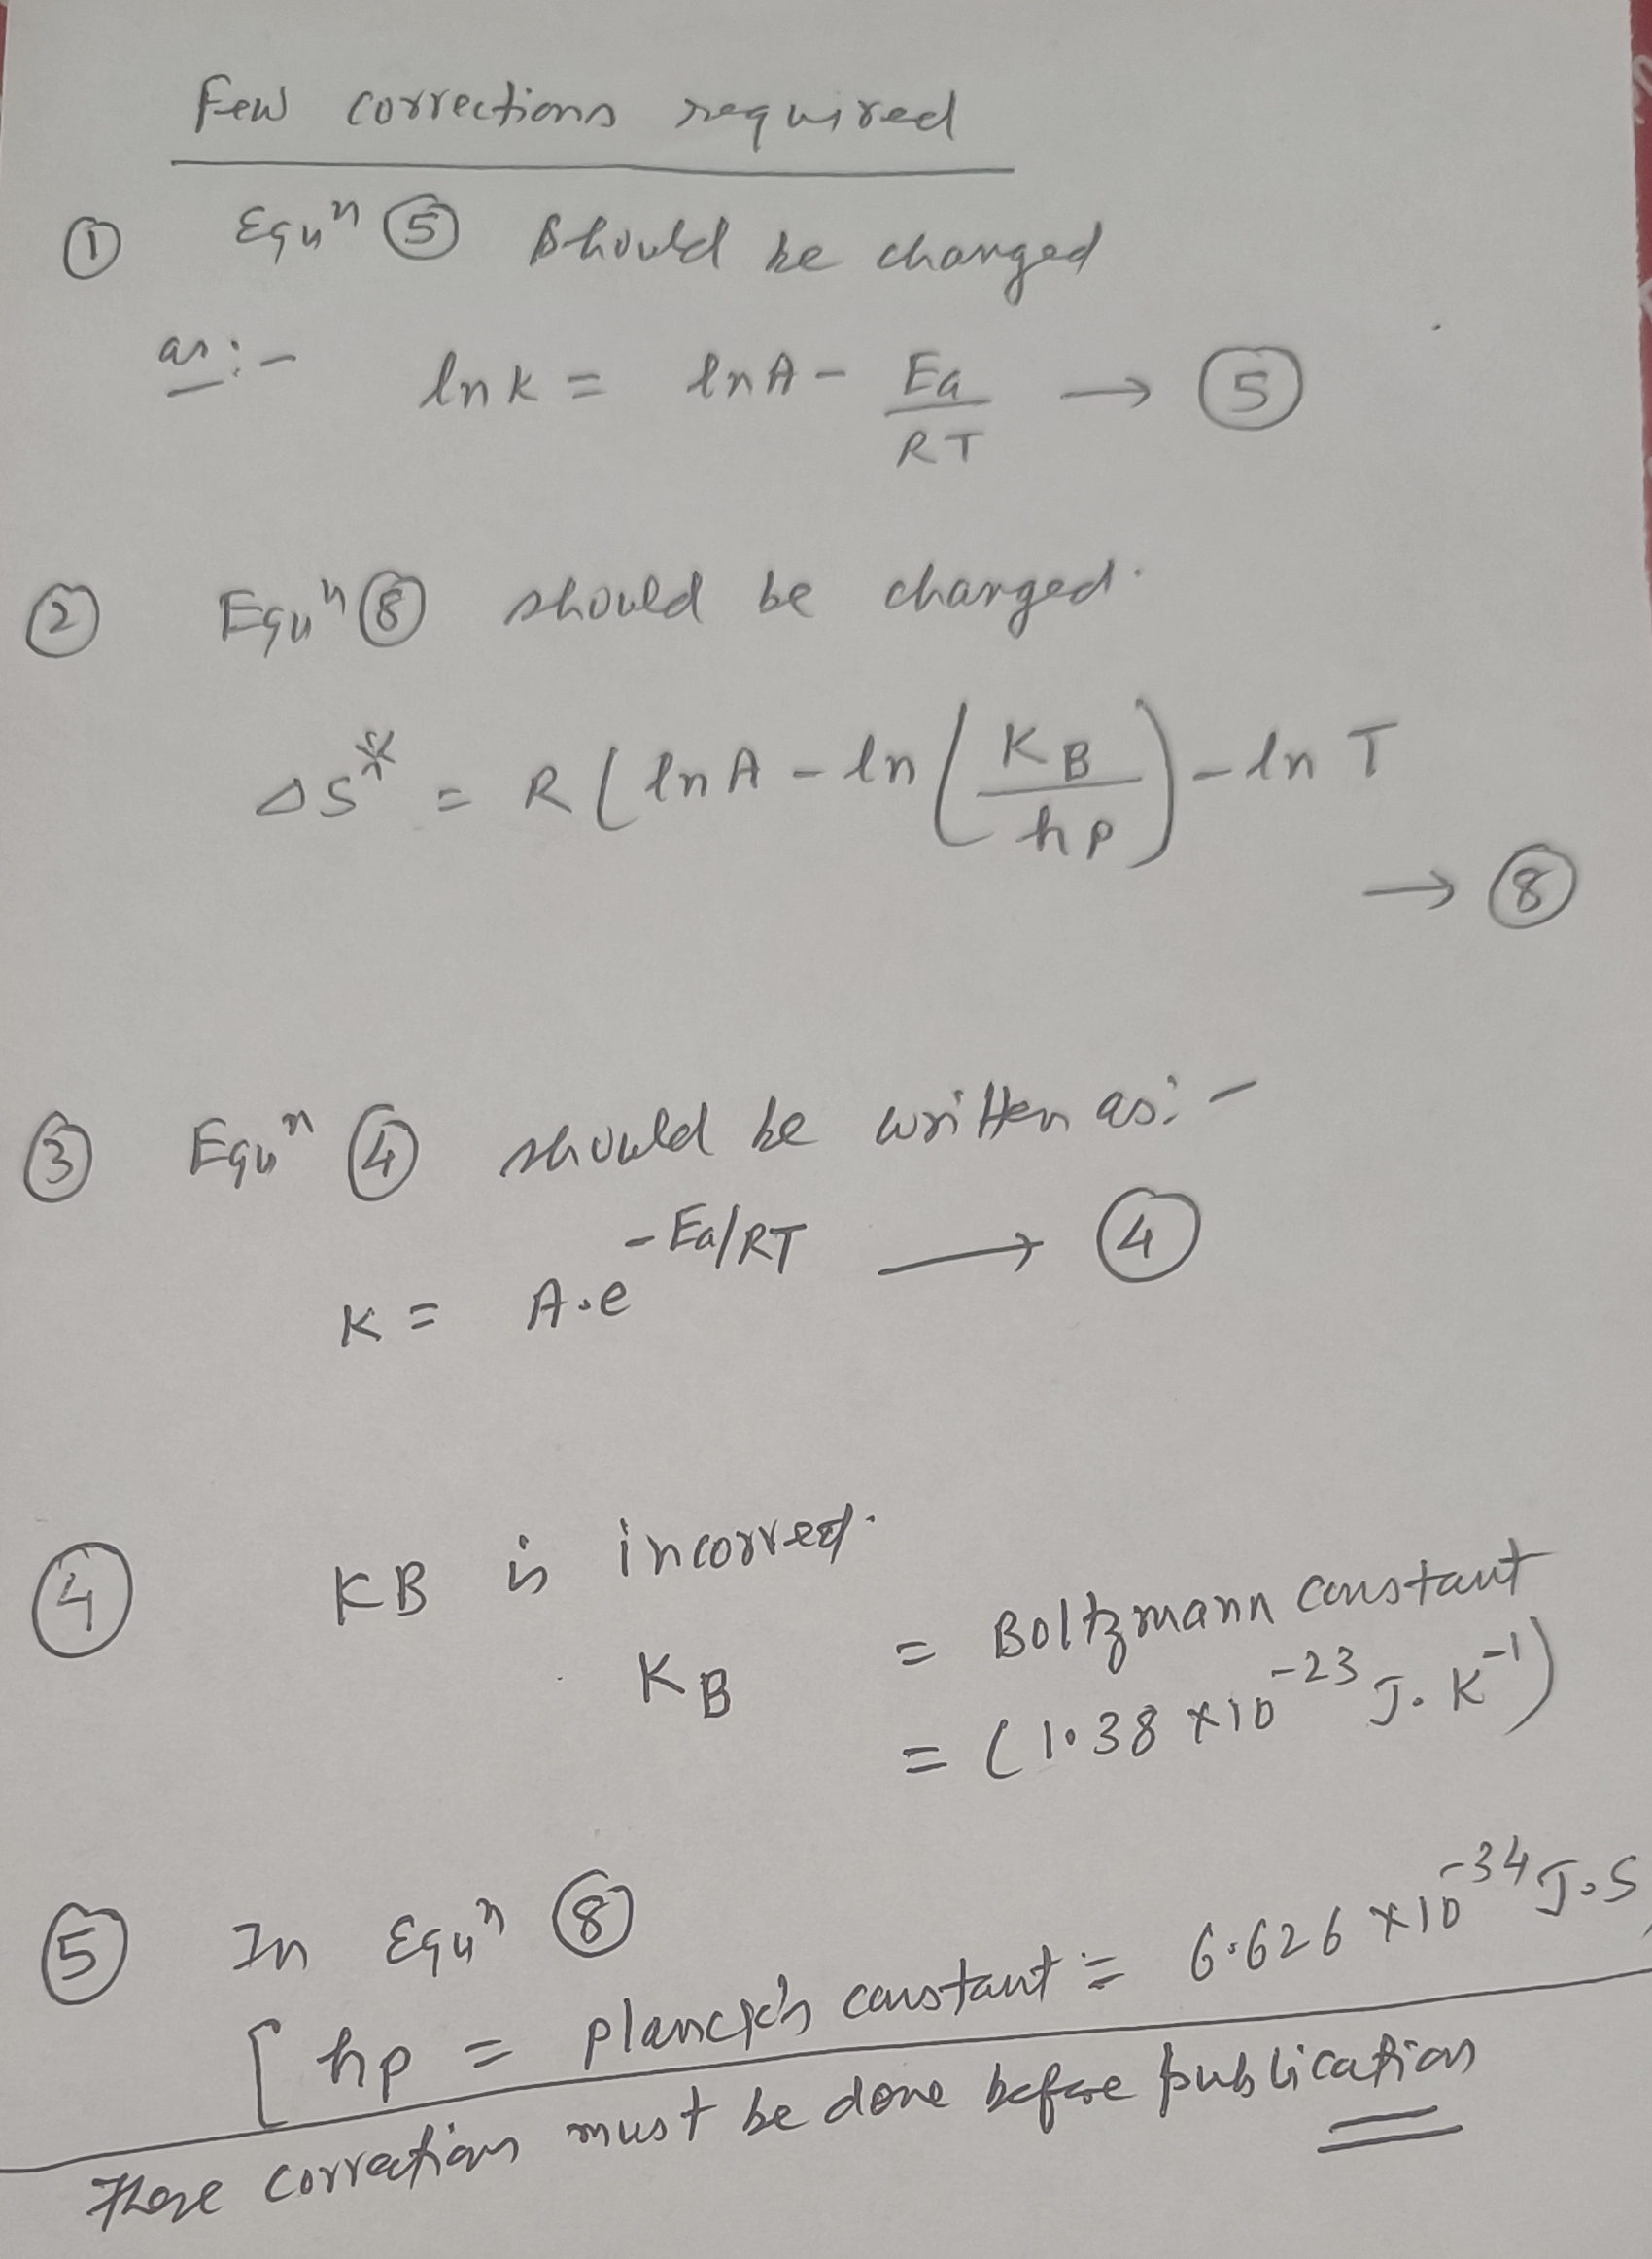 Few corrections required
① Equⁿ ⑤ should be changed
as:- ln k = ln A - Ea/RT → ⑤
② Equⁿ ⑧ should be changed.
ΔS* = R ( ln A - ln ( K_B / hp ) - ln T
→ ⑧
③ Equⁿ ④ should be written as:-
K = A.e^(-Ea/RT) → ④
④ KB is incorrect.
K_B = Boltzmann constant
= (1.38 × 10^-23 J. K^-1)
⑤ In Equⁿ ⑧
[ hp = planck's constant = 6.626 × 10^-34 J.S
These corrections must be done before publication